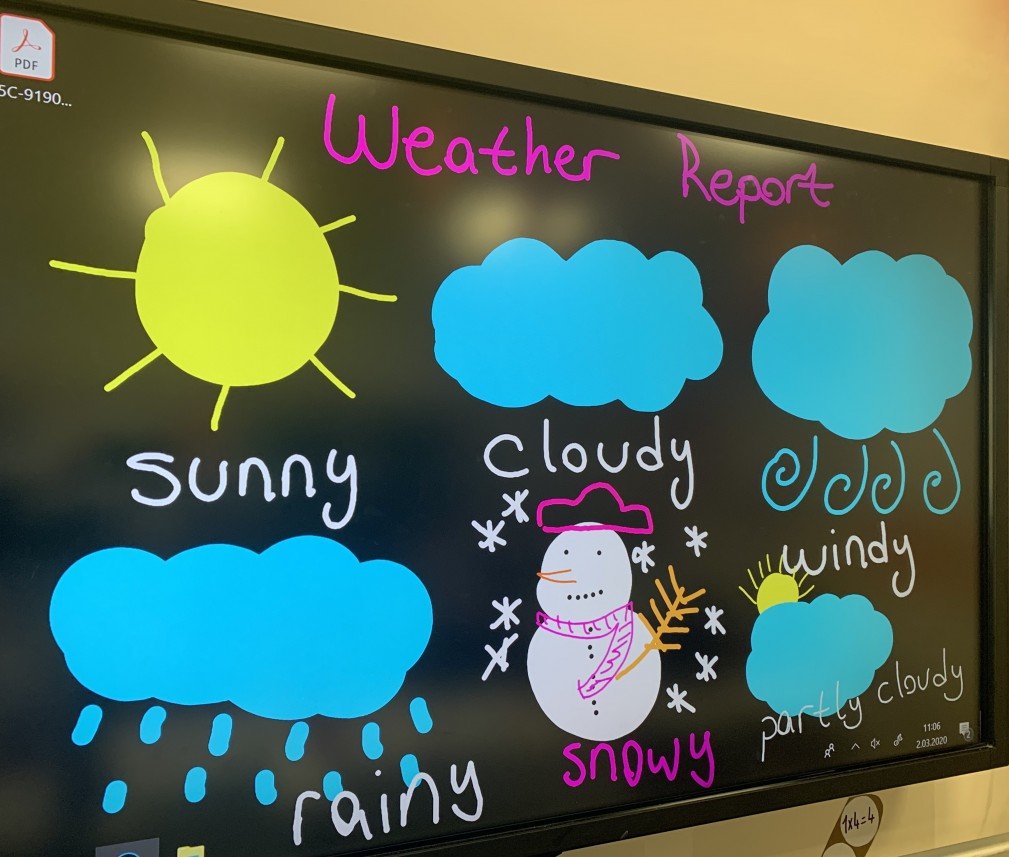 PDF
5C-9190...
Weather Report
sunny
cloudy
windy
rainy
snowy
partly cloudy
11:06
2.03.2020
2
1x4=4